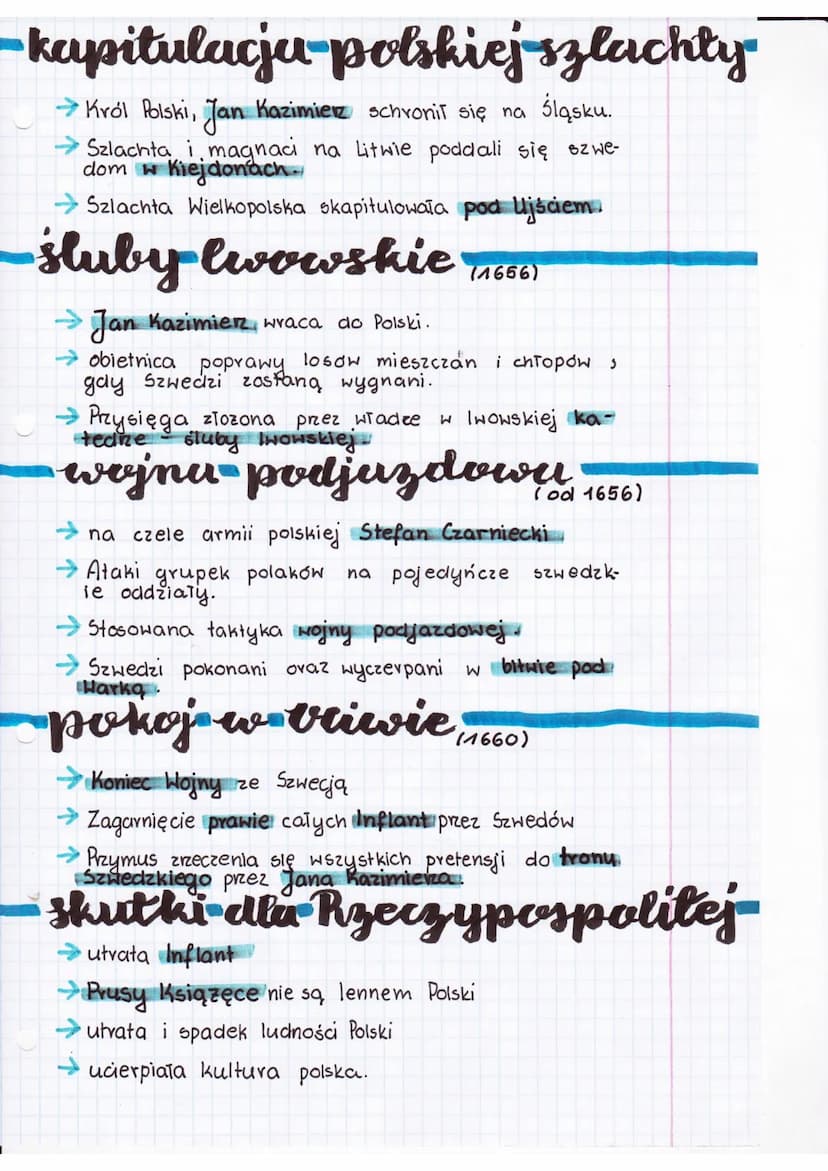 kapitulacja polskiej szlachty
→ Król Polski, Jan Kazimierz schronił się na Śląsku.
→ Szlachta i magnaci na Litwie poddali się szwe-
dom w Kiejdonach.
→ Szlachta Wielkopolska skapitulowała pod Ujściem.
śluby lwowskie (1656)
→ Jan Kazimierz wraca do Polski.
→ obietnica poprawy losów mieszczan i chłopów,
gdy Szwedzi zostaną wygnani.
→ Przysięga złożona przez władce w lwowskiej ka-
tedrze - śluby lwowskiej.
wojna podjazdowa
(od 1656)
→ na czele armii polskiej Stefan Czarniecki
→ Ataki grupek polaków na pojedyńcze szwedzk-
ie oddziały.
→ Stosowana taktyka wojny podjazdowej.
→ Szwedzi pokonani oraz wyczerpani w bitwie pod
Warką.
pokoj w Oliwie (1660)
→ Koniec Wojny ze Szwecją
→ Zagarnięcie prawie całych Inflant przez Szwedów
→ Przymus zrzeczenia się wszystkich pretensji do tronu
Szwedzkiego przez Jana Kazimierza.
skutki dla Rzeczypospolitej
→ utrata Inflant
→ Prusy Książęce nie są lennem Polski
→ utrata i spadek ludności Polski
→ ucierpiała kultura polska.